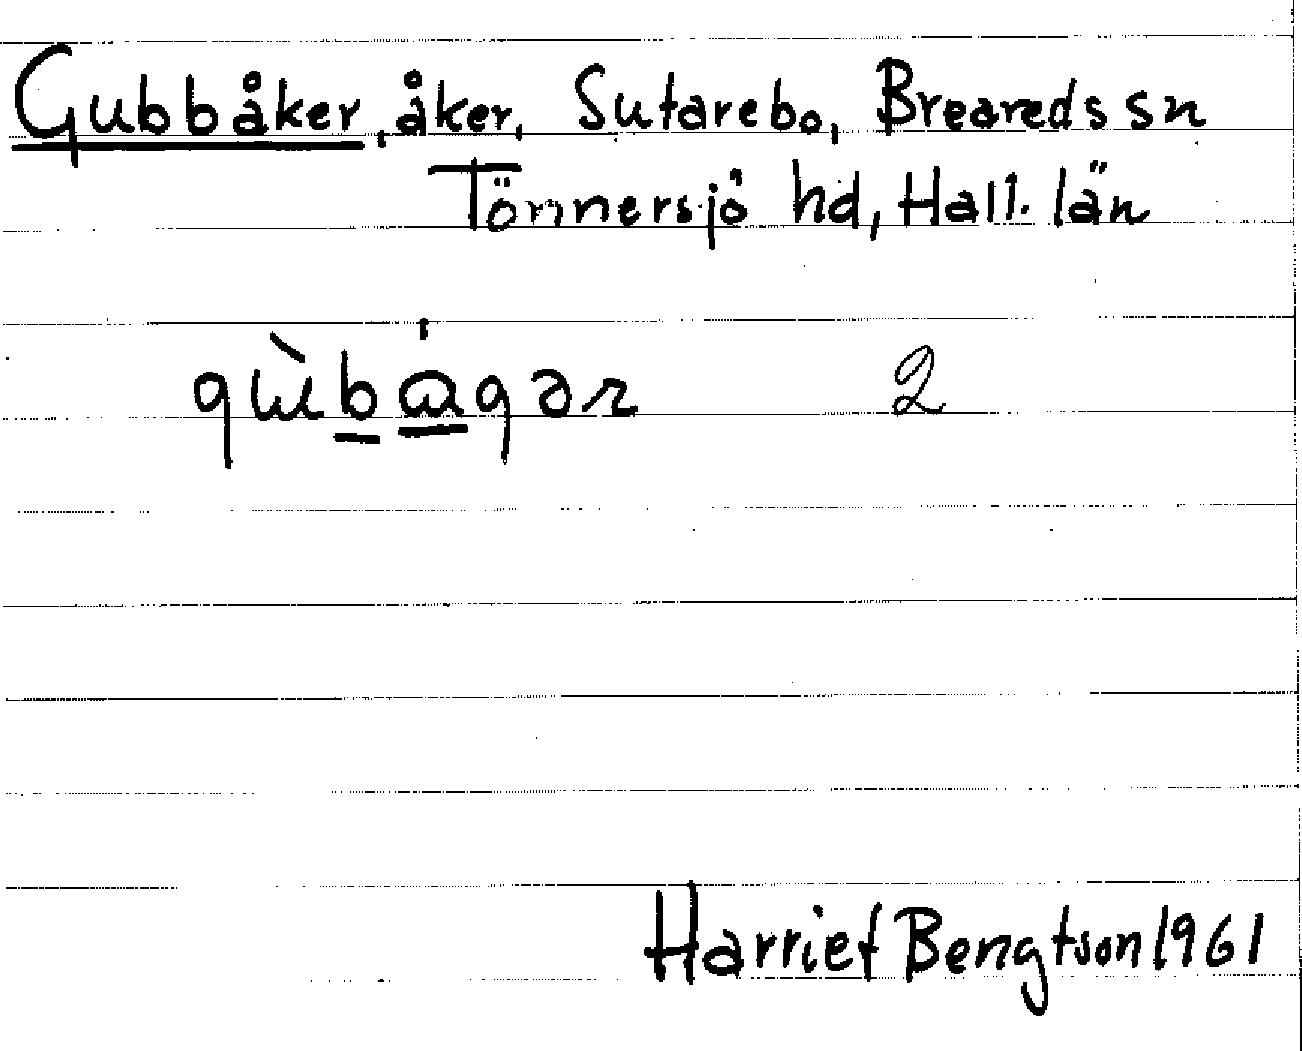 Gubbåker, åker, Sutarebo, Breareds sn
Tönnersjö hd, Hall. län
2
Harriet Bengtson 1961